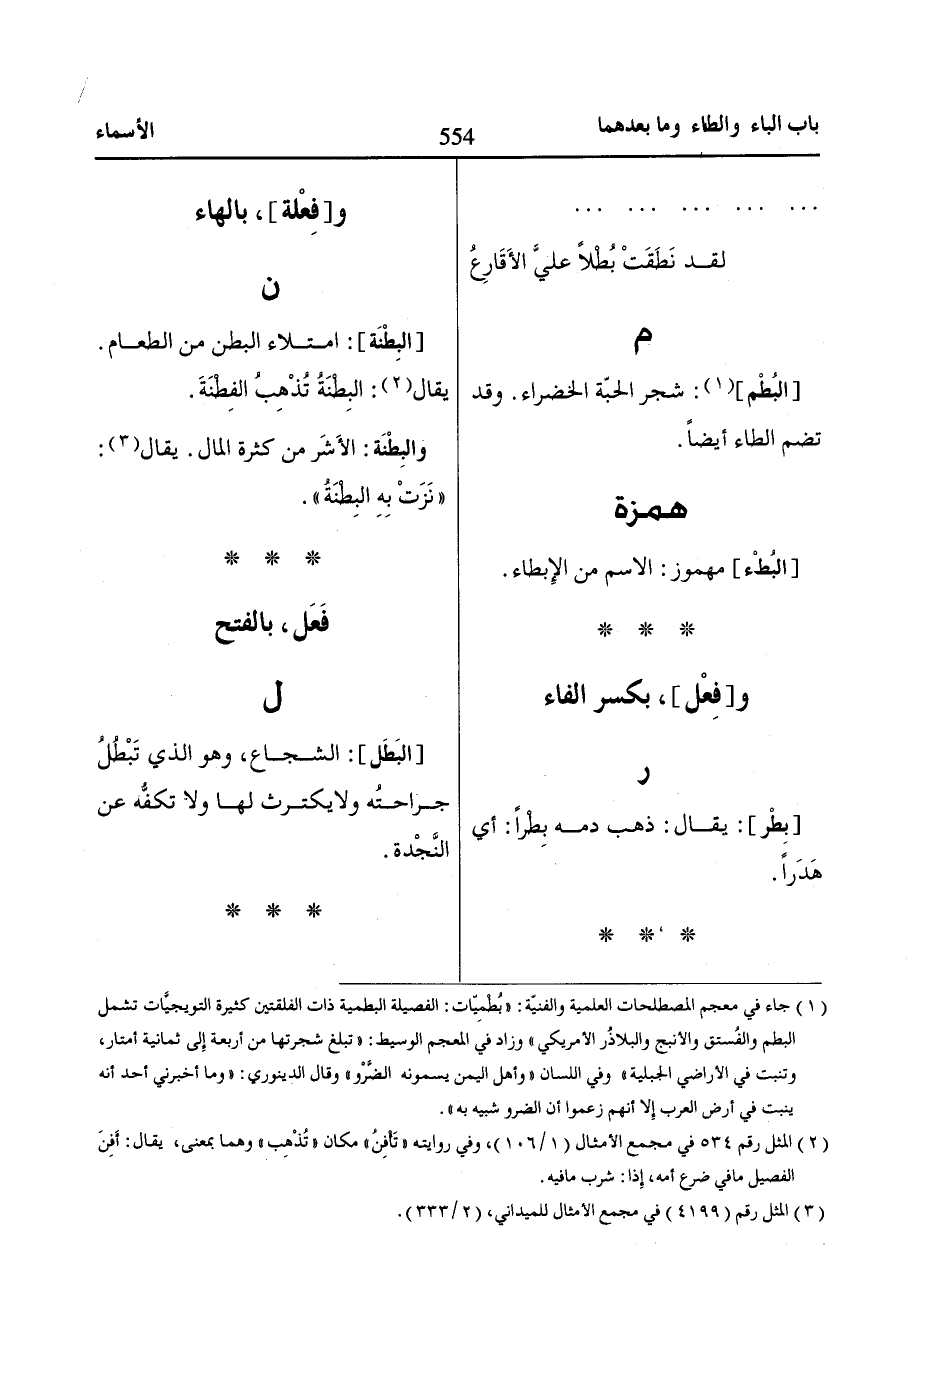 باب الباء والطاء وما بعدهما
554
الأسماء
... ... ... ... ...
لقـد نَطَقَتْ بُطْلاً عليَّ الأَقَارِعُ
م
[البُطْم](١): شجر الحبّة الخضراء. وقد
تضم الطاء أيضاً.
همزة
[البُطْء] مهموز: الاسم من الإبطاء.
* * *
و[فِعْل]، بكسر الفاء
ر
[بِطْر]: يقـال: ذهب دمـه بِطْراً: أي
هَدَراً.
* * *
و[فِعْلة]، بالهاء
ن
[البِطْنَة]: امـتـلاء البطن من الطعـام.
يقال(٢): البِطْنَةُ تُذْهِبُ الفِطْنَةَ.
والبِطْنَة: الأشَر من كثرة المال. يقال(٣):
«نَزَتْ بِهِ البِطْنَةُ».
* * *
فَعَل، بالفتح
ل
[البَطَل]: الشـجـاع، وهو الذي تَبْطُلُ
جـراحـتُه ولايكـترث لهـا ولا تكفُّه عن
النَّجْدة.
* * *
(١) جاء في معجم المصطلحات العلمية والفنيّة: «بُطْمِيّات: الفصيلة البطمية ذات الفلقتين كثيرة التويجيَّات تشمل
البطم والفُستق والأنبج والبلاذُر الأمريكي» وزاد في المعجم الوسيط: «تبلغ شجرتها من أربعة إلى ثمانية أمتار،
وتنبت في الأراضي الجبلية» وفي اللسان «وأهل اليمن يسمونه الضَّرْو» وقال الدينوري: «وما أخبرني أحد أنه
ينبت في أرض العرب إلا أنهم زعموا أن الضرو شبيه به».
(٢) المثل رقم ٥٣٤ في مجمع الأمثال (١٠٦/١)، وفي روايته «تَأْفِنُ» مكان «تُذْهِب» وهما بمعنى، يقال: أَفِنَ
الفصيل مافي ضرع أمه، إذا: شرب مافيه.
(٣) المثل رقم (٤١٩٩) في مجمع الأمثال للميداني، (٣٣٣/٢).